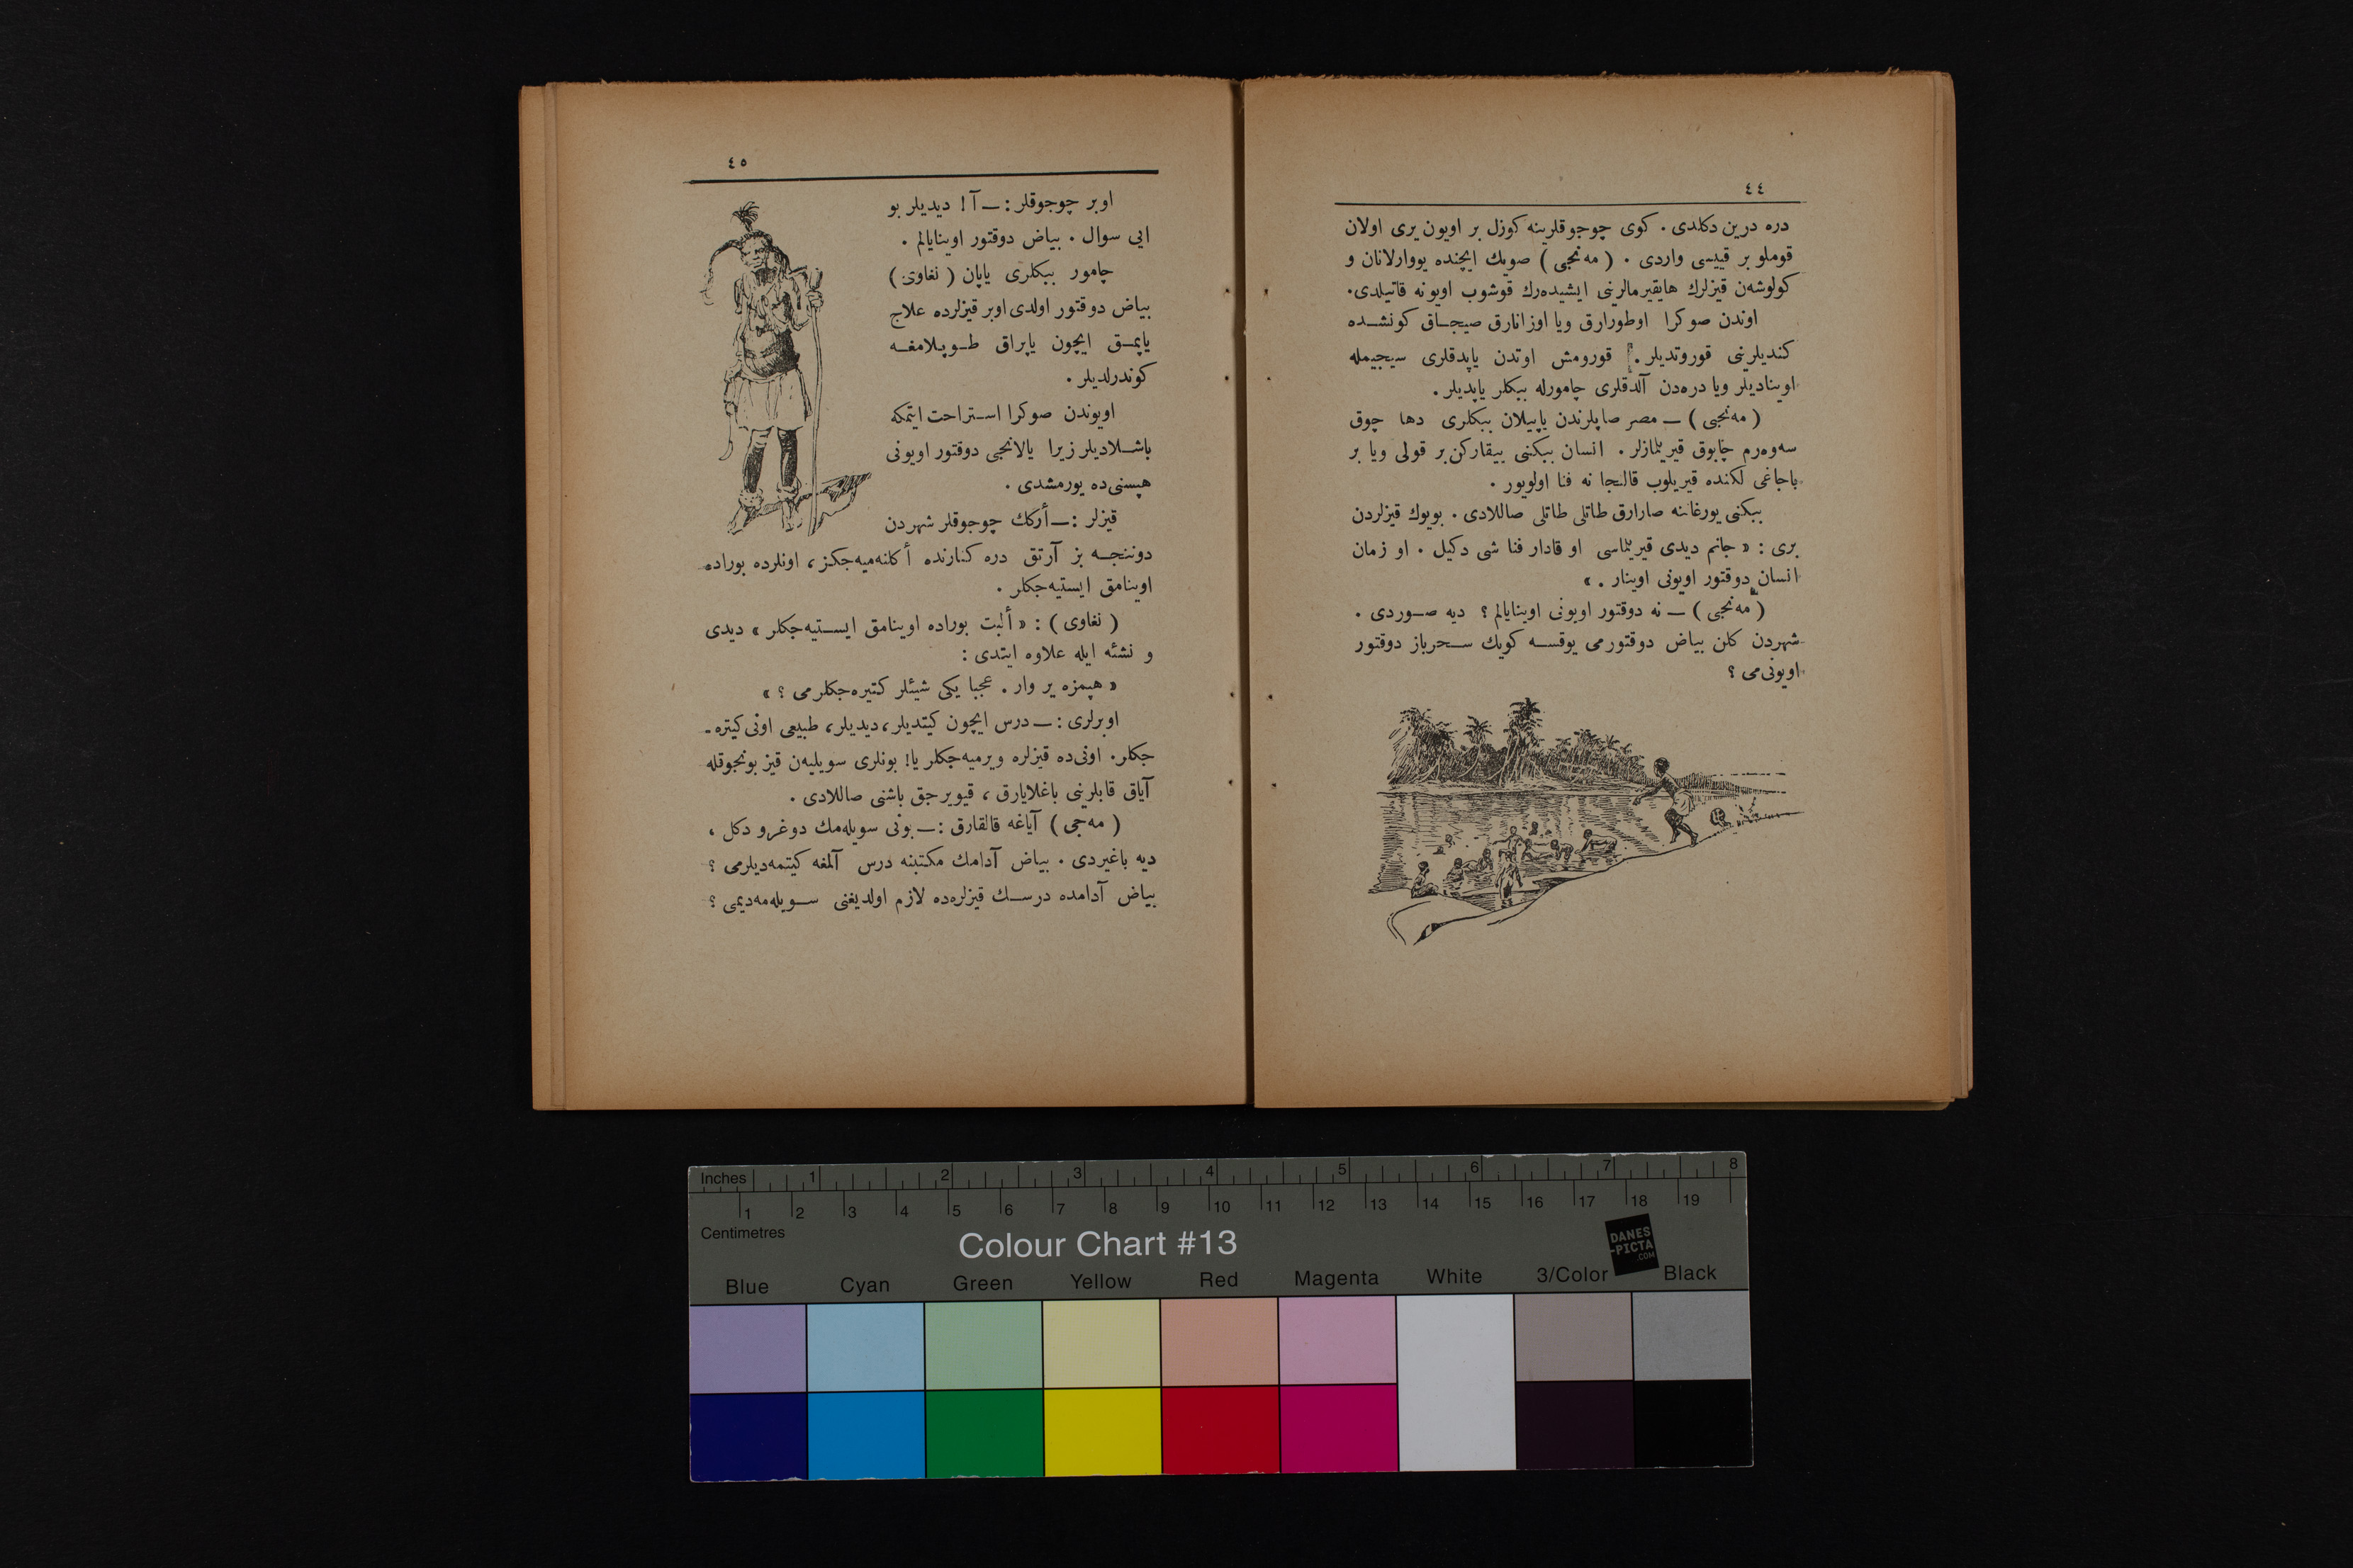 ٤٤
دره درین دكلدی . كوی چوجوقلرینه كوزل بر اویون یری اولان
قوملو بر قییسی واردی . ( مه‌نجی ) صویك ایچنده یووارلانان و
كولوشه‌ن قیزلرك هایقیرمالرینی ایشیده‌رك قوشوب اویونه قاتیلدی .
اوندن صوكرا اوطورارق ویا اوزانارق صیجـاق كونشـده
كندیلرینی قوروتدیلر . قورومش اوتدن یاپدقلری سیجیمله
اویناديلر ویا دره‌دن آلدقلری چامورله ببكلر یاپدیلر .
( مه‌نجی ) — مصر صاپلرندن یاپیلان ببكلری دها چوق
سه‌وه‌رم چابوق قیریلمازلر . انسان ببكنی ییقاركن بر قولی ویا بر
باجاغی لكنده قیریلوب قالنجا نه فنا اولویور .
ببكنی یورغاننه صارارق طاتلی طاتلی صاللادی . بویوك قیزلردن
بری : « جانم دیدی قیریلماسی او قادار فنا شی دكیل . او زمان
انسان دوقتور اویونی اوینار . »
( مه‌نجی ) — نه دوقتور اویونی اوینایالم ؟ دیه صـوردی .
شهردن كلن بیاض دوقتورمی یوقسـه كویك سـحرباز دوقتور
اویونی‌می ؟
٤٥
اوبر چوجوقلر : — آ ! دیدیلر بو
ایی سوال . بیاض دوقتور اوینایالم .
چامور ببكلری یاپان ( نغاوی )
بیاض دوقتور اولدی اوبر قیزلرده علاج
یاپمـق ایچون یاپراق طـوپلامغـه
كوندرلدیلر .
اویوندن صوكرا اسـتراحت ایتمكه
باشـلادیلر زیرا یالانجی دوقتور اویونی
هپسنی‌ده یورمشدی .
قیزلر : — أركك چوجوقلر شهردن
دوننجـه بز آرتق دره كنارنده أكلنه‌میه‌جكز ، اونلرده بوراده
اوینامق ایستیه‌جكلر .
( نغاوی ) : « ألبت بوراده اوینامق ایسـتیه‌جكلر » دیدی
و نشئه ایله علاوه ایتدی :
« هپمزه یر وار . عجبا یكی شیئلر كتیره‌جكلرمی ؟ »
اوبرلری : — درس ایچون كیتدیلر ، دیدیلر ، طبیعی اونی كیتره -
جكلر . اونی‌ده قیزلره ویرمیه‌جكلر یا ! بونلری سویلیه‌ن قیز بونجوقله
آیاق قابلرینی باغلایارق ، قیویرجق باشنی صاللادی .
( مه‌جی ) آیاغه قالقارق : — بونی سویله‌مك دوغرو دكل ،
دیه باغیردی . بیاض آدامك مكتبنه درس آلمغه كیتمه‌دیلرمی ؟
بیاض آدامده درسـك قیزلره‌ده لازم اولدیغنی سـویله‌مه‌دیمی ؟
Inches 1 2 3 4 5 6 7 8
1 2 3 4 5 6 7 8 9 10 11 12 13 14 15 16 17 18 19
Centimetres
Colour Chart #13
DANES
-PICTA
.COM
Blue Cyan Green Yellow Red Magenta White 3/Color Black